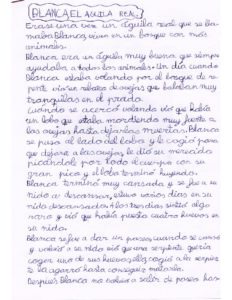 BLANCA, EL AGUILA REAL.
Erase una vez un águila real que se lla-
maba Blanca, vivia en un bosque con más
animales.
Blanca era un águila muy buena que siempre
ayudaba a todos los animales. Un día cuando
Blanca estaba volando por el bosque de re-
pente vio un rebaño de ovejas que balaban muy
tranquilas en el prado.
Cuando se acercó volando vió que había
un lobo que estaba mordiendo muy fuerte
a las ovejas hasta dejarlas muertas. Blanca
se puso al lado del lobo y le cogió para
que dejara a las ovejas, le dio su merecido
picándole por todo el cuerpo con su
gran pico y el lobo terminó huyendo.
Blanca terminó muy cansada y se fue a su
nido a descansar, estuvo varios dias en su
nido descansando. A los tres dias sintió algo
raro y vió que había puesto cuatro huevos en
su nido.
Blanca se fue a dar un paseo, cuando se cansó
y volvió a su nido vió que una serpiente queria
coger uno de sus huevos, ella cogió a la serpien-
te la agarró hasta conseguir matarla.
Despues Blanca no volvio a salir de paseo has-